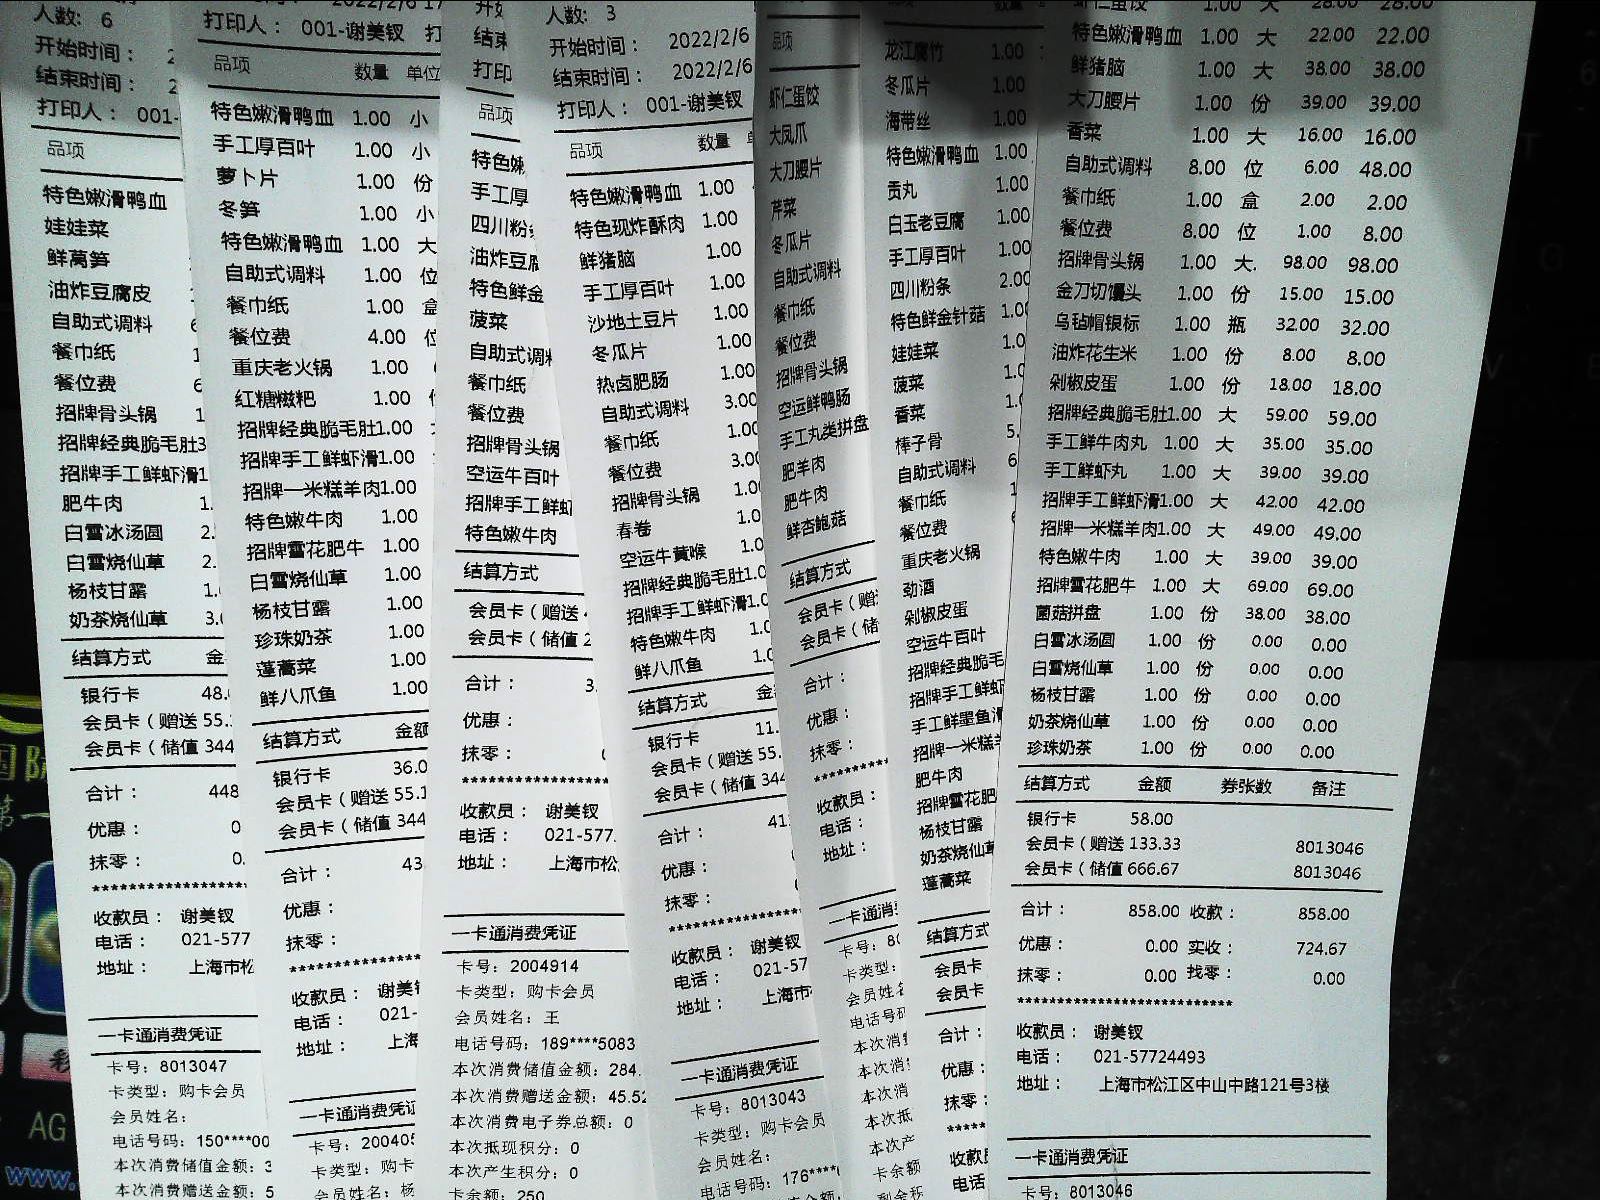 人数: 6
开始时间: 2
结束时间: 2
打印人: 001-
品项
特色嫩滑鸭血
娃娃菜
鲜莴笋
油炸豆腐皮
自助式调料 6
餐巾纸 1
餐位费 6
招牌骨头锅 1
招牌经典脆毛肚3
招牌手工鲜虾滑1
肥牛肉 1.
白雪冰汤圆 2.
白雪烧仙草 2.
杨枝甘露 1.
奶茶烧仙草 3.
结算方式 金
银行卡 48.
会员卡(赠送 55.
会员卡(储值 344
合计: 448
优惠: 0
抹零: 0.
************************
收款员: 谢美钗
电话: 021-577
地址: 上海市松
一卡通消费凭证
卡号: 8013047
卡类型: 购卡会员
会员姓名:
电话号码: 150****00
本次消费储值金额: 3
本次消费赠送金额: 5
2022/2/6 17
打印人: 001-谢美钗 打
品项 数量 单位
特色嫩滑鸭血 1.00 小
手工厚百叶 1.00 小
萝卜片 1.00 份
冬笋 1.00 小
特色嫩滑鸭血 1.00 大
自助式调料 1.00 位
餐巾纸 1.00 盒
餐位费 4.00 位
重庆老火锅 1.00
红糖糍粑 1.00
招牌经典脆毛肚1.00
招牌手工鲜虾滑1.00
招牌一米糕羊肉1.00
特色嫩牛肉 1.00
招牌雪花肥牛 1.00
白雪烧仙草 1.00
杨枝甘露 1.00
珍珠奶茶 1.00
蓬蒿菜 1.00
鲜八爪鱼 1.00
结算方式 金额
银行卡 36.0
会员卡(赠送 55.1
会员卡(储值 344
合计: 43
优惠:
抹零:
********************
收款员: 谢美
电话: 021-
地址: 上海
一卡通消费凭证
卡号: 200405
卡类型: 购卡
会员姓名: 杨
开
结束
打印
品项
特色嫩
手工厚
四川粉
油炸豆腐
特色鲜金
菠菜
自助式调料
餐巾纸
餐位费
招牌骨头锅
空运牛百叶
招牌手工鲜虾
特色嫩牛肉
结算方式
会员卡(赠送
会员卡(储值 2
合计: 3
优惠:
抹零:
********************
收款员: 谢美钗
电话: 021-577
地址: 上海市松
一卡通消费凭证
卡号: 2004914
卡类型: 购卡会员
会员姓名: 王
电话号码: 189****5083
本次消费储值金额: 284.
本次消费赠送金额: 45.52
本次消费电子券总额: 0
本次抵现积分: 0
本次产生积分: 0
卡余额: 250
人数: 3
开始时间: 2022/2/6
结束时间: 2022/2/6
打印人: 001-谢美钗
品项 数量
特色嫩滑鸭血 1.00
特色现炸酥肉 1.00
鲜猪脑 1.00
手工厚百叶 1.00
沙地土豆片 1.00
冬瓜片 1.00
热卤肥肠 1.00
自助式调料 3.00
餐巾纸 1.00
餐位费 3.00
招牌骨头锅 1.0
春卷 1.0
空运牛黄喉 1.0
招牌经典脆毛肚1.0
招牌手工鲜虾滑1.0
特色嫩牛肉 1.0
鲜八爪鱼 1.
结算方式 金
银行卡 11.
会员卡(赠送 55.
会员卡(储值 344
合计: 41
优惠:
抹零:
****************
收款员: 谢美钗
电话: 021-57
地址: 上海市
一卡通消费凭证
卡号: 8013043
卡类型: 购卡会员
会员姓名:
电话号码: 176****
本次消费储值金额:
品项
虾仁蛋饺
大凤爪
大刀腰片
芹菜
冬瓜片
自助式调料
餐巾纸
餐位费
招牌骨头锅
空运鲜鸭肠
手工丸类拼盘
肥羊肉
肥牛肉
鲜杏鲍菇
结算方式
会员卡(赠
会员卡(储
合计:
优惠:
抹零:
************
收款员:
电话:
地址:
一卡通消
卡号: 80
卡类型:
会员姓名
电话号码
本次消
本次消
本次消
本次抵
本次产
卡余额
龙江腐竹 1.00
冬瓜片 1.00
海带丝 1.00
特色嫩滑鸭血 1.00
贡丸 1.00
白玉老豆腐 1.00
手工厚百叶 1.00
四川粉条 2.00
特色鲜金针菇 1.00
娃娃菜 1.0
菠菜 1.0
香菜 1.
棒子骨 5.
自助式调料 6
餐巾纸 1
餐位费
重庆老火锅
劲酒
剁椒皮蛋
空运牛百叶
招牌经典脆毛
招牌手工鲜虾
手工鲜墨鱼滑
招牌一米糕羊
肥牛肉
招牌雪花肥
杨枝甘露
奶茶烧仙草
蓬蒿菜
结算方式
会员卡
会员卡
合计:
优惠:
抹零:
*****
收款员
电话
虾仁蛋饺 1.00 大 28.00 28.00
特色嫩滑鸭血 1.00 大 22.00 22.00
鲜猪脑 1.00 大 38.00 38.00
大刀腰片 1.00 份 39.00 39.00
香菜 1.00 大 16.00 16.00
自助式调料 8.00 位 6.00 48.00
餐巾纸 1.00 盒 2.00 2.00
餐位费 8.00 位 1.00 8.00
招牌骨头锅 1.00 大. 98.00 98.00
金刀切馒头 1.00 份 15.00 15.00
乌毡帽银标 1.00 瓶 32.00 32.00
油炸花生米 1.00 份 8.00 8.00
剁椒皮蛋 1.00 份 18.00 18.00
招牌经典脆毛肚1.00 大 59.00 59.00
手工鲜牛肉丸 1.00 大 35.00 35.00
手工鲜虾丸 1.00 大 39.00 39.00
招牌手工鲜虾滑1.00 大 42.00 42.00
招牌一米糕羊肉1.00 大 49.00 49.00
特色嫩牛肉 1.00 大 39.00 39.00
招牌雪花肥牛 1.00 大 69.00 69.00
菌菇拼盘 1.00 份 38.00 38.00
白雪冰汤圆 1.00 份 0.00 0.00
白雪烧仙草 1.00 份 0.00 0.00
杨枝甘露 1.00 份 0.00 0.00
奶茶烧仙草 1.00 份 0.00 0.00
珍珠奶茶 1.00 份 0.00 0.00
结算方式 金额 券张数 备注
银行卡 58.00
会员卡(赠送 133.33 8013046
会员卡(储值 666.67 8013046
合计: 858.00 收款: 858.00
优惠: 0.00 实收: 724.67
抹零: 0.00 找零: 0.00
**************************
收款员: 谢美钗
电话: 021-57724493
地址: 上海市松江区中山中路121号3楼
一卡通消费凭证
卡号: 8013046
AG
www.